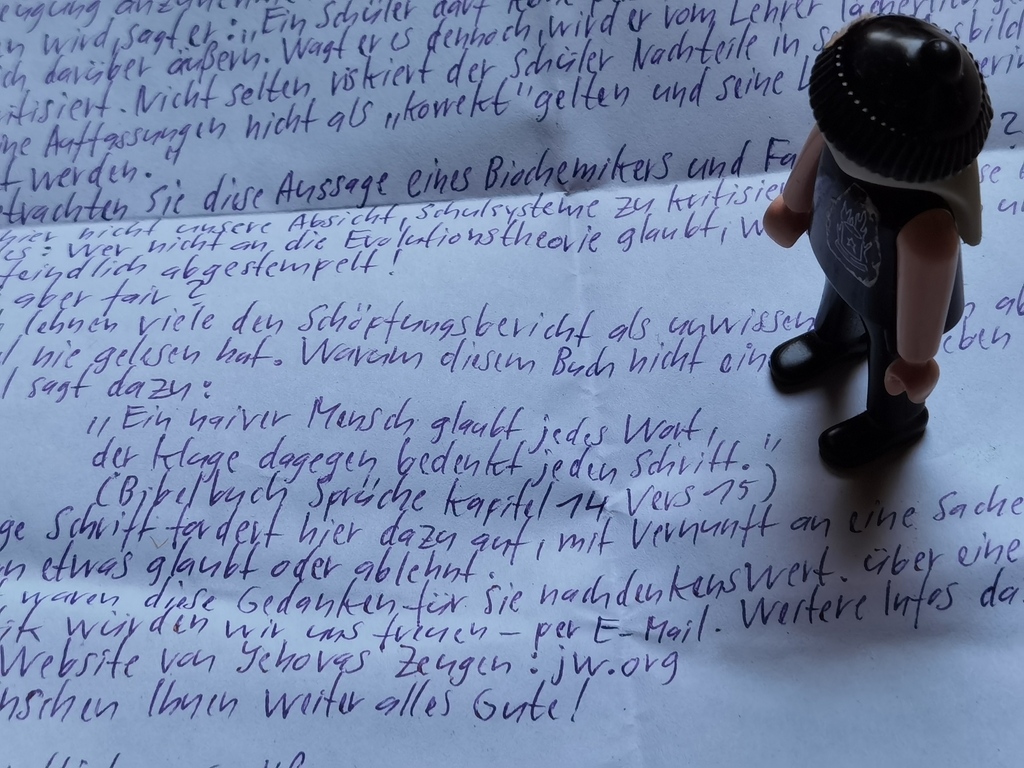 wird, sagt er: „Ein Schüler darf
darüber äußern. Wagt er es dennoch, wird er vom Lehrer
kritisiert. Nicht selten riskiert der Schüler Nachteile in
Auffassungen nicht als „korrekt" gelten und seine
werden."
Sie diese Aussage eines Biochemikers und
hier nicht unsere Absicht, Schulsysteme zu
Wer nicht an die Evolutionstheorie glaubt,
feindlich abgestempelt!
aber fair?
lehnen viele den Schöpfungsbericht als unwissen
nie gelesen hat. Warum diesem Buch nicht ein
sagt dazu:
„Ein naiver Mensch glaubt jedes Wort,
der Kluge dagegen bedenkt jeden Schritt."
(Bibelbuch Sprüche Kapitel 14 Vers 15)
ge Schrift fordert hier dazu auf, mit Vernunft an eine Sache
etwas glaubt oder ablehnt.
waren diese Gedanken für Sie nachdenkenswert. Über eine
ik würden wir uns freuen - per E-Mail. Weitere Infos
Website von Jehovas Zeugen: jw.org
nschen Ihnen weiter alles Gute!